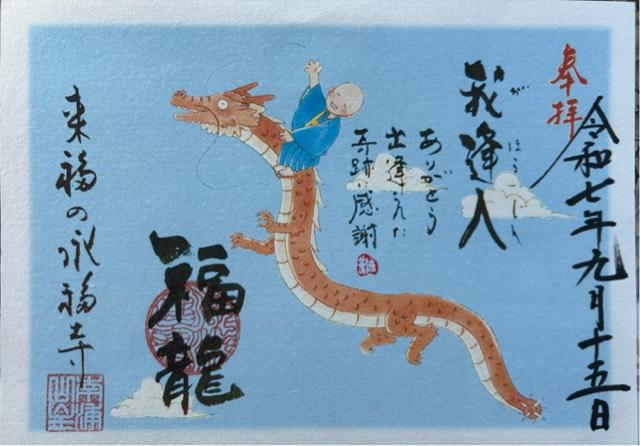 奉拝
令和七年九月十五日
我逢人
が
ほうじん
ありがとう
出逢えた
奇跡に感謝
福龍
来福の永福寺